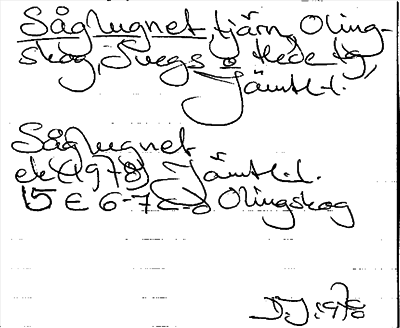 Såglugnet, tjärn, Oling-
skog, Svegs o Hede tg,
Jämtl.l.
Såglugnet
ek (1978) Jämtl.l.
15 E 6-7 c-d Olingskog
DJ 1978